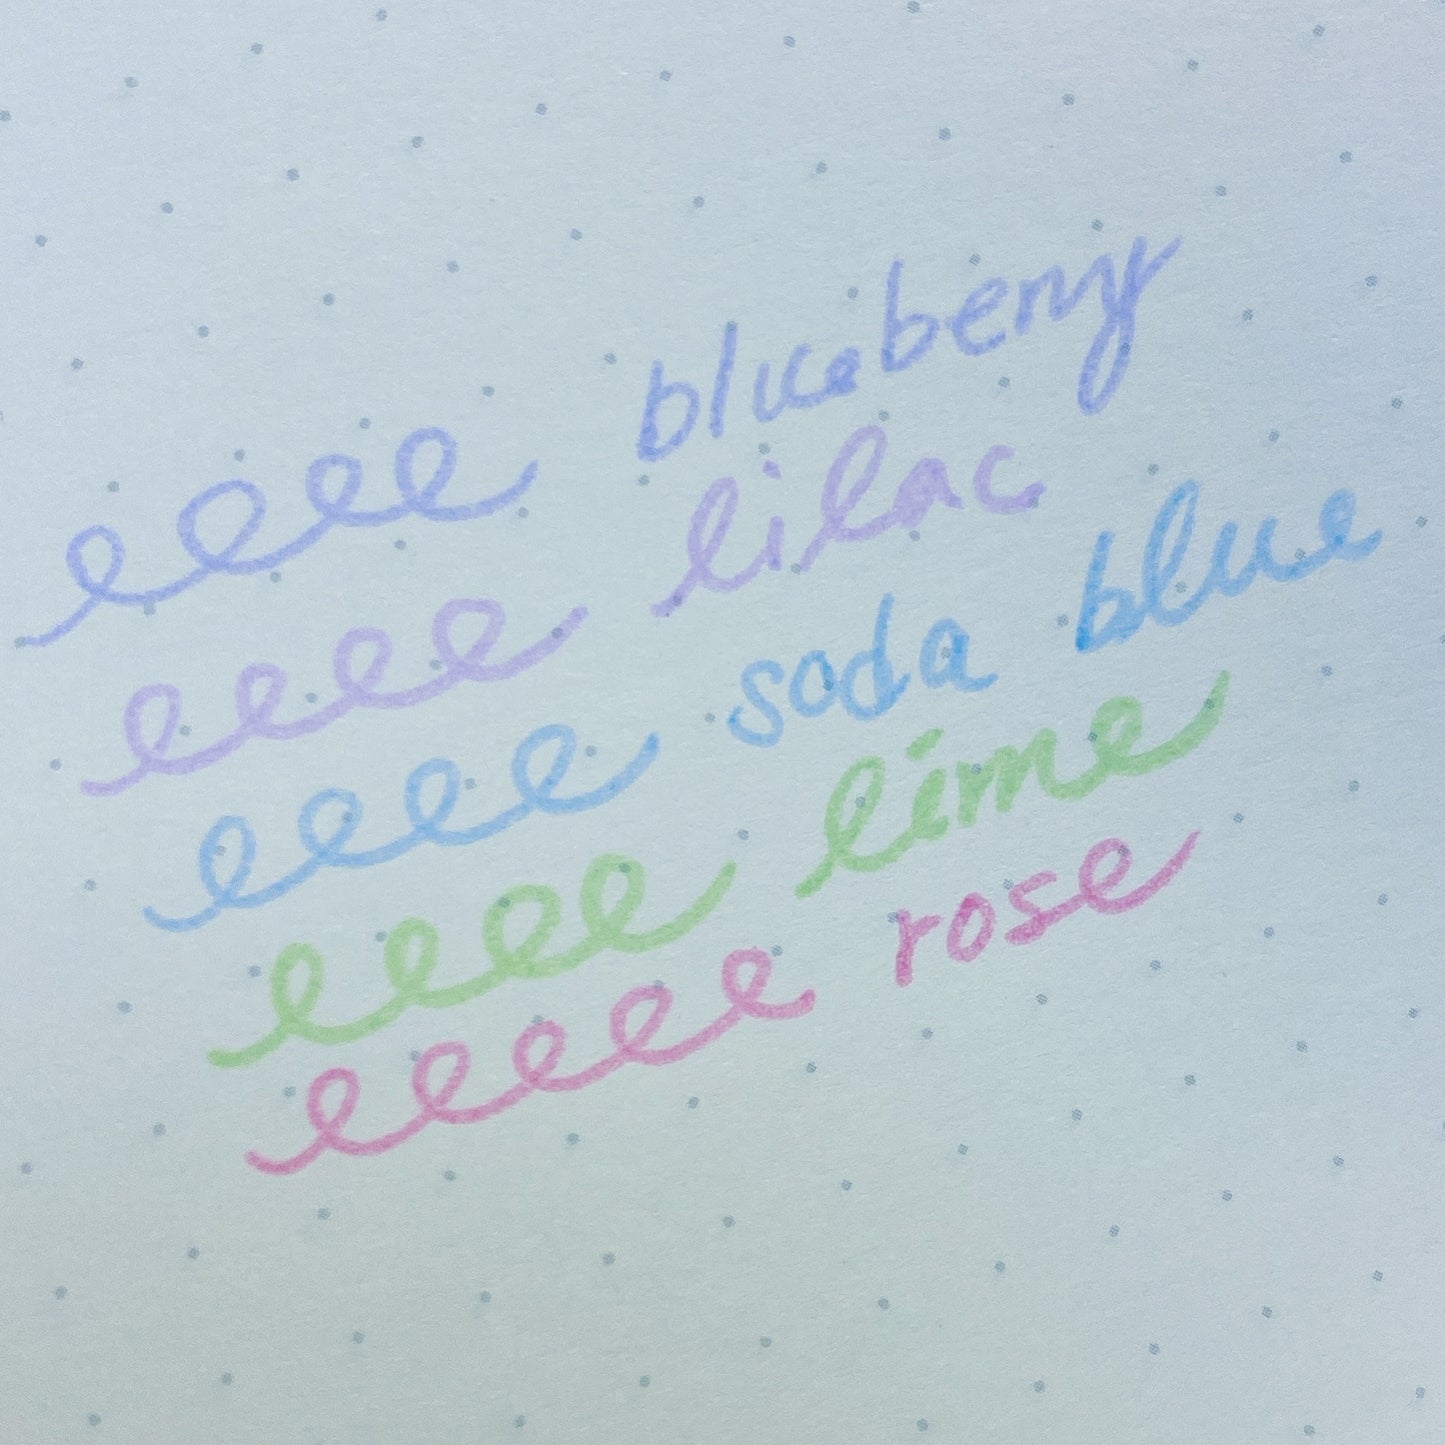 eeee blueberry
eeee lilac
eeee soda blue
eeee lime
eeeee rose